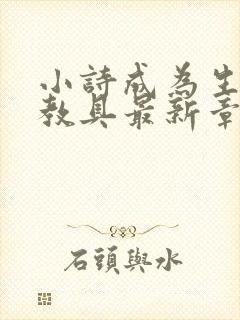 小詩成為生
教具最新章
石頭與水